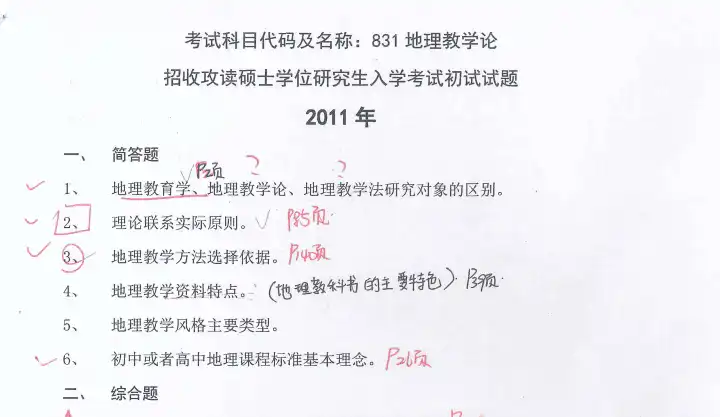 考试科目代码及名称：831 地理教学论
招收攻读硕士学位研究生入学考试初试试题
2011 年
一、 简答题
P2页 ? ?
1、 地理教育学、地理教学论、地理教学法研究对象的区别。
2、 理论联系实际原则。 P85页.
3、 地理教学方法选择依据。P140页
4、 地理教学资料特点。（地理教科书的主要特色）. P39页.
5、 地理教学风格主要类型。
6、 初中或者高中地理课程标准基本理念。P26页
二、 综合题